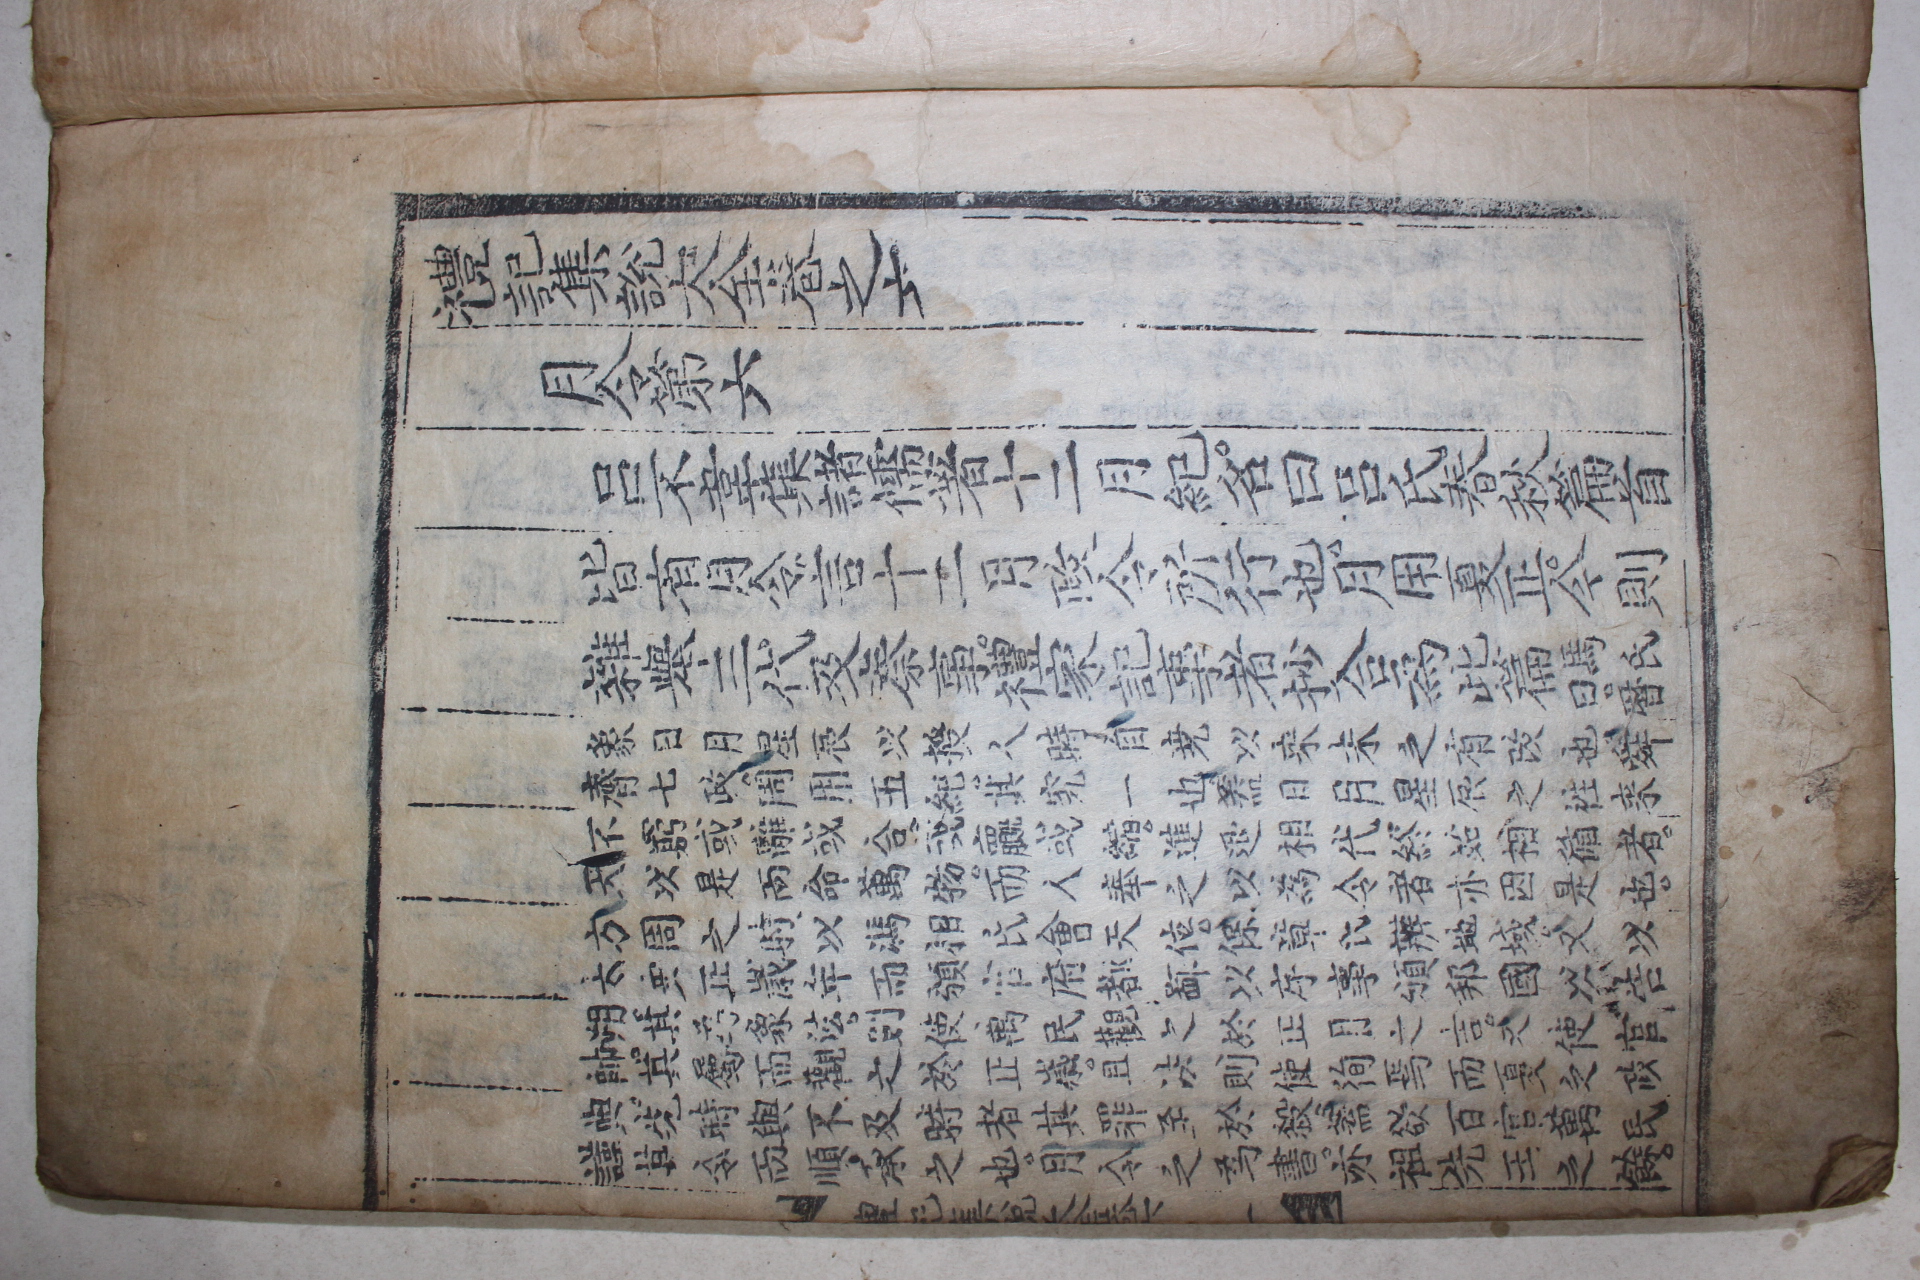 禮記集說大全卷之六
月令第六
呂不韋集諸儒著十二月紀。名曰呂氏春秋篇首
皆有月令。言十二月政令所行也。月用夏正。令則
雜舉三代及秦事。禮家記事者抄合爲此篇馬氏曰。曆
象日月星辰以授人時自堯以來未之有改也舜
齊七政。周用五紀。其究一也蓋日月星辰之往來
不窮或離或合。或贏或縮。進退相代終始相循者。
天以是而命萬物。而人奉之以爲令者亦因是也。
方周之時、以馮相氏會天位。保章氏辨地域。又以
太史正歲年而頒官府都鄙以序事頒邦國以告
朔。其爲象法。則使萬民觀之於正月之言。又使官
帥其屬而觀之於正歲。且法則使徇焉而夏之政
典。先時與不及時者其罪至於殺。蓋欲百官萬民
謹其令而順承之也。月令之爲書。亦祖先王之餘。
禮記集說大全卷六 一